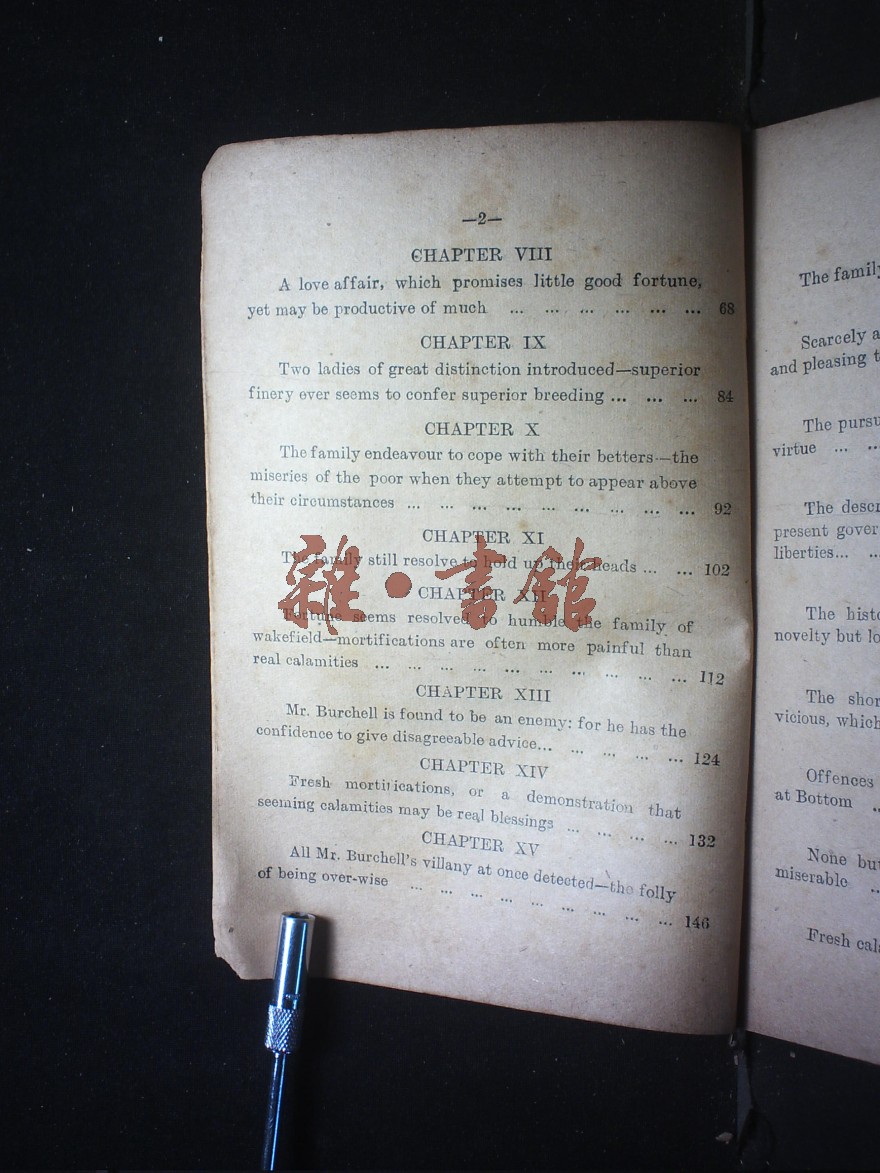 —2—
CHAPTER VIII
A love affair, which promises little good fortune,
yet may be productive of much ... ... ... ... ... ... 68
CHAPTER IX
Two ladies of great distinction introduced—superior
finery ever seems to confer superior breeding ... ... ... 84
CHAPTER X
The family endeavour to cope with their betters—the
miseries of the poor when they attempt to appear above
their circumstances ... ... ... ... ... ... ... ... ... 92
CHAPTER XI
The family still resolve to hold up their heads ... ... 102
CHAPTER XII
Fortune seems resolved to humble the family of
wakefield—mortifications are often more painful than
real calamities ... ... ... ... ... ... ... ... ... ... 112
CHAPTER XIII
Mr. Burchell is found to be an enemy: for he has the
confidence to give disagreeable advice... ... ... ... ... 124
CHAPTER XIV
Fresh mortifications, or a demonstration that
seeming calamities may be real blessings ... ... ... ... 132
CHAPTER XV
All Mr. Burchell's villany at once detected—the folly
of being over-wise ... ... ... ... ... ... ... ... ... 146
雜·書館
The family
Scarcely a
and pleasing t
The pursu
virtue ... ..
The descr
present gover
liberties... ..
The histo
novelty but lo
The shor
vicious, which
Offences
at Bottom ..
None but
miserable ..
Fresh cala